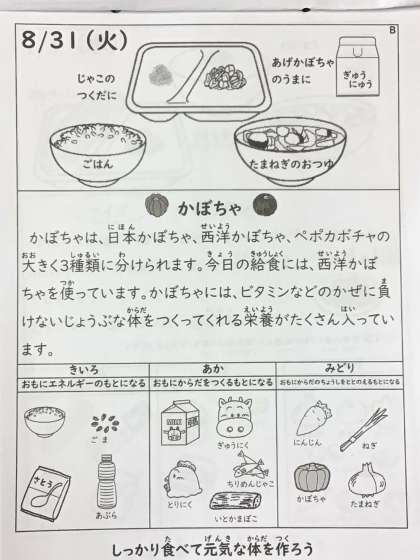 8/31（火）
B
じゃこの
つくだに
あげかぼちゃ
のうまに
ぎゅう
にゅう
ごはん
たまねぎのおつゆ
かぼちゃ
かぼちゃは、日本かぼちゃ、西洋かぼちゃ、ペポカボチャの
大きく3種類に分けられます。今日の給食には、西洋かぼ
ちゃを使っています。かぼちゃには、ビタミンなどのかぜに負
けないじょうぶな体をつくってくれる栄養がたくさん入ってい
ます。
きいろ
おもにエネルギーのもとになる
ごま
さとう
あぶら
あか
おもにからだをつくるもとになる
MILK
ぎゅうにく
ちりめんじゃこ
とりにく
いとかまぼこ
みどり
おもにからだのちょうしをととのえるもとになる
にんじん
ねぎ
かぼちゃ
たまねぎ
しっかり食べて元気な体を作ろう